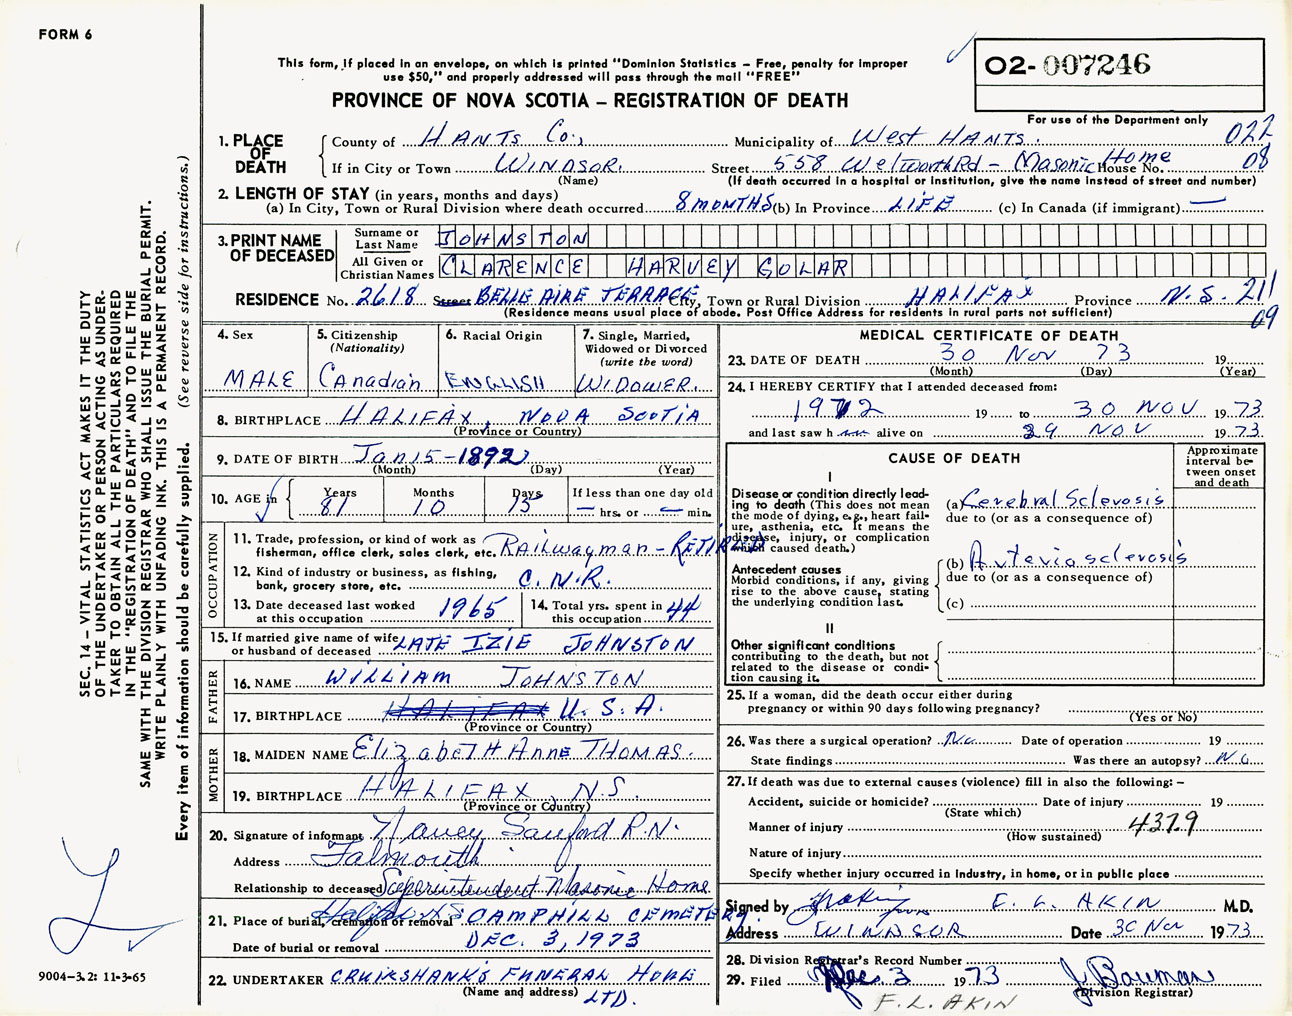 FORM 6
This form, if placed in an envelope, on which is printed "Dominion Statistics – Free, penalty for improper
use $50," and properly addressed will pass through the mail "FREE"
PROVINCE OF NOVA SCOTIA – REGISTRATION OF DEATH
O2-007246
For use of the Department only
022
08
1. PLACE OF DEATH
County of HANTS Co., Municipality of West HANTS.
If in City or Town WINDSOR. Street 558 Welworth Rd - Masonic Home House No.
(Name) (If death occurred in a hospital or institution, give the name instead of street and number)
2. LENGTH OF STAY (in years, months and days)
(a) In City, Town or Rural Division where death occurred 8 MONTHS (b) In Province LIFE (c) In Canada (if immigrant) —
3. PRINT NAME OF DECEASED
Surname or Last Name JOHNSTON
All Given or Christian Names CLARENCE HARVEY GOLAR
RESIDENCE No. 2618 Street BELLE AIRE TERRACE City, Town or Rural Division HALIFAX Province N.S. 211
09
(Residence means usual place of abode. Post Office Address for residents in rural parts not sufficient)
4. Sex
MALE
5. Citizenship (Nationality)
Canadian
6. Racial Origin
ENGLISH
7. Single, Married, Widowed or Divorced (write the word)
WIDOWER.
8. BIRTHPLACE HALIFAX, NOVA SCOTIA
(Province or Country)
9. DATE OF BIRTH Jan 15-1892
(Month) (Day) (Year)
10. AGE in Years 81 Months 10 Days 15 If less than one day old
— hrs. or — min.
OCCUPATION
11. Trade, profession, or kind of work as
fisherman, office clerk, sales clerk, etc. Railwayman - RETIRED
12. Kind of industry or business, as fishing,
bank, grocery store, etc. C.N.R.
13. Date deceased last worked
at this occupation 1965
14. Total yrs. spent in
this occupation 44
15. If married give name of wife
or husband of deceased LATE IZIE JOHNSTON
FATHER
16. NAME WILLIAM JOHNSTON
17. BIRTHPLACE HALIFAX U.S.A.
(Province or Country)
MOTHER
18. MAIDEN NAME Elizabeth Anne THOMAS.
19. BIRTHPLACE HALIFAX, N.S.
(Province or Country)
20. Signature of informant Nancy Sanford R.N.
Address Falmouth
Relationship to deceased Superintendent Masonic Home
21. Place of burial, cremation or removal Halifax N S CAMPHILL CEMETERY.
Date of burial or removal DEC. 3, 1973
22. UNDERTAKER CRUIKSHANK'S FUNERAL HOME
(Name and address) LTD.
MEDICAL CERTIFICATE OF DEATH
23. DATE OF DEATH 30 Nov 73 19
(Month) (Day) (Year)
24. I HEREBY CERTIFY that I attended deceased from:
1972 19 to 30 NOV 1973
and last saw h im alive on 29 NOV 1973
CAUSE OF DEATH
Approximate interval between onset and death
I
Disease or condition directly leading to death (This does not mean the mode of dying, e.g., heart failure, asthenia, etc. It means the disease, injury, or complication which caused death.)
(a) Cerebral Sclerosis
due to (or as a consequence of)
Antecedent causes
Morbid conditions, if any, giving rise to the above cause, stating the underlying condition last.
(b) Arteriosclerosis
due to (or as a consequence of)
(c)
II
Other significant conditions
contributing to the death, but not related to the disease or condition causing it.
25. If a woman, did the death occur either during
pregnancy or within 90 days following pregnancy?
(Yes or No)
26. Was there a surgical operation? No Date of operation 19
State findings Was there an autopsy? No
27. If death was due to external causes (violence) fill in also the following: –
Accident, suicide or homicide? Date of injury 19
(State which)
Manner of injury 437.9
(How sustained)
Nature of injury
Specify whether injury occurred in industry, in home, or in public place
Signed by F. L. AKIN M.D.
Address WINDSOR Date 30 Nov 1973
28. Division Registrar's Record Number
29. Filed Dec. 3 1973 J Bauman
(Division Registrar)
F.L. AKIN
SEC. 14 – VITAL STATISTICS ACT MAKES IT THE DUTY
OF THE UNDERTAKER OR PERSON ACTING AS UNDER-
TAKER TO OBTAIN ALL THE PARTICULARS REQUIRED
IN THE "REGISTRATION OF DEATH" AND TO FILE THE
SAME WITH THE DIVISION REGISTRAR WHO SHALL ISSUE THE BURIAL PERMIT.
WRITE PLAINLY WITH UNFADING INK. THIS IS A PERMANENT RECORD.
Every item of information should be carefully supplied. (See reverse side for instructions.)
9004-3.2: 11-3-65